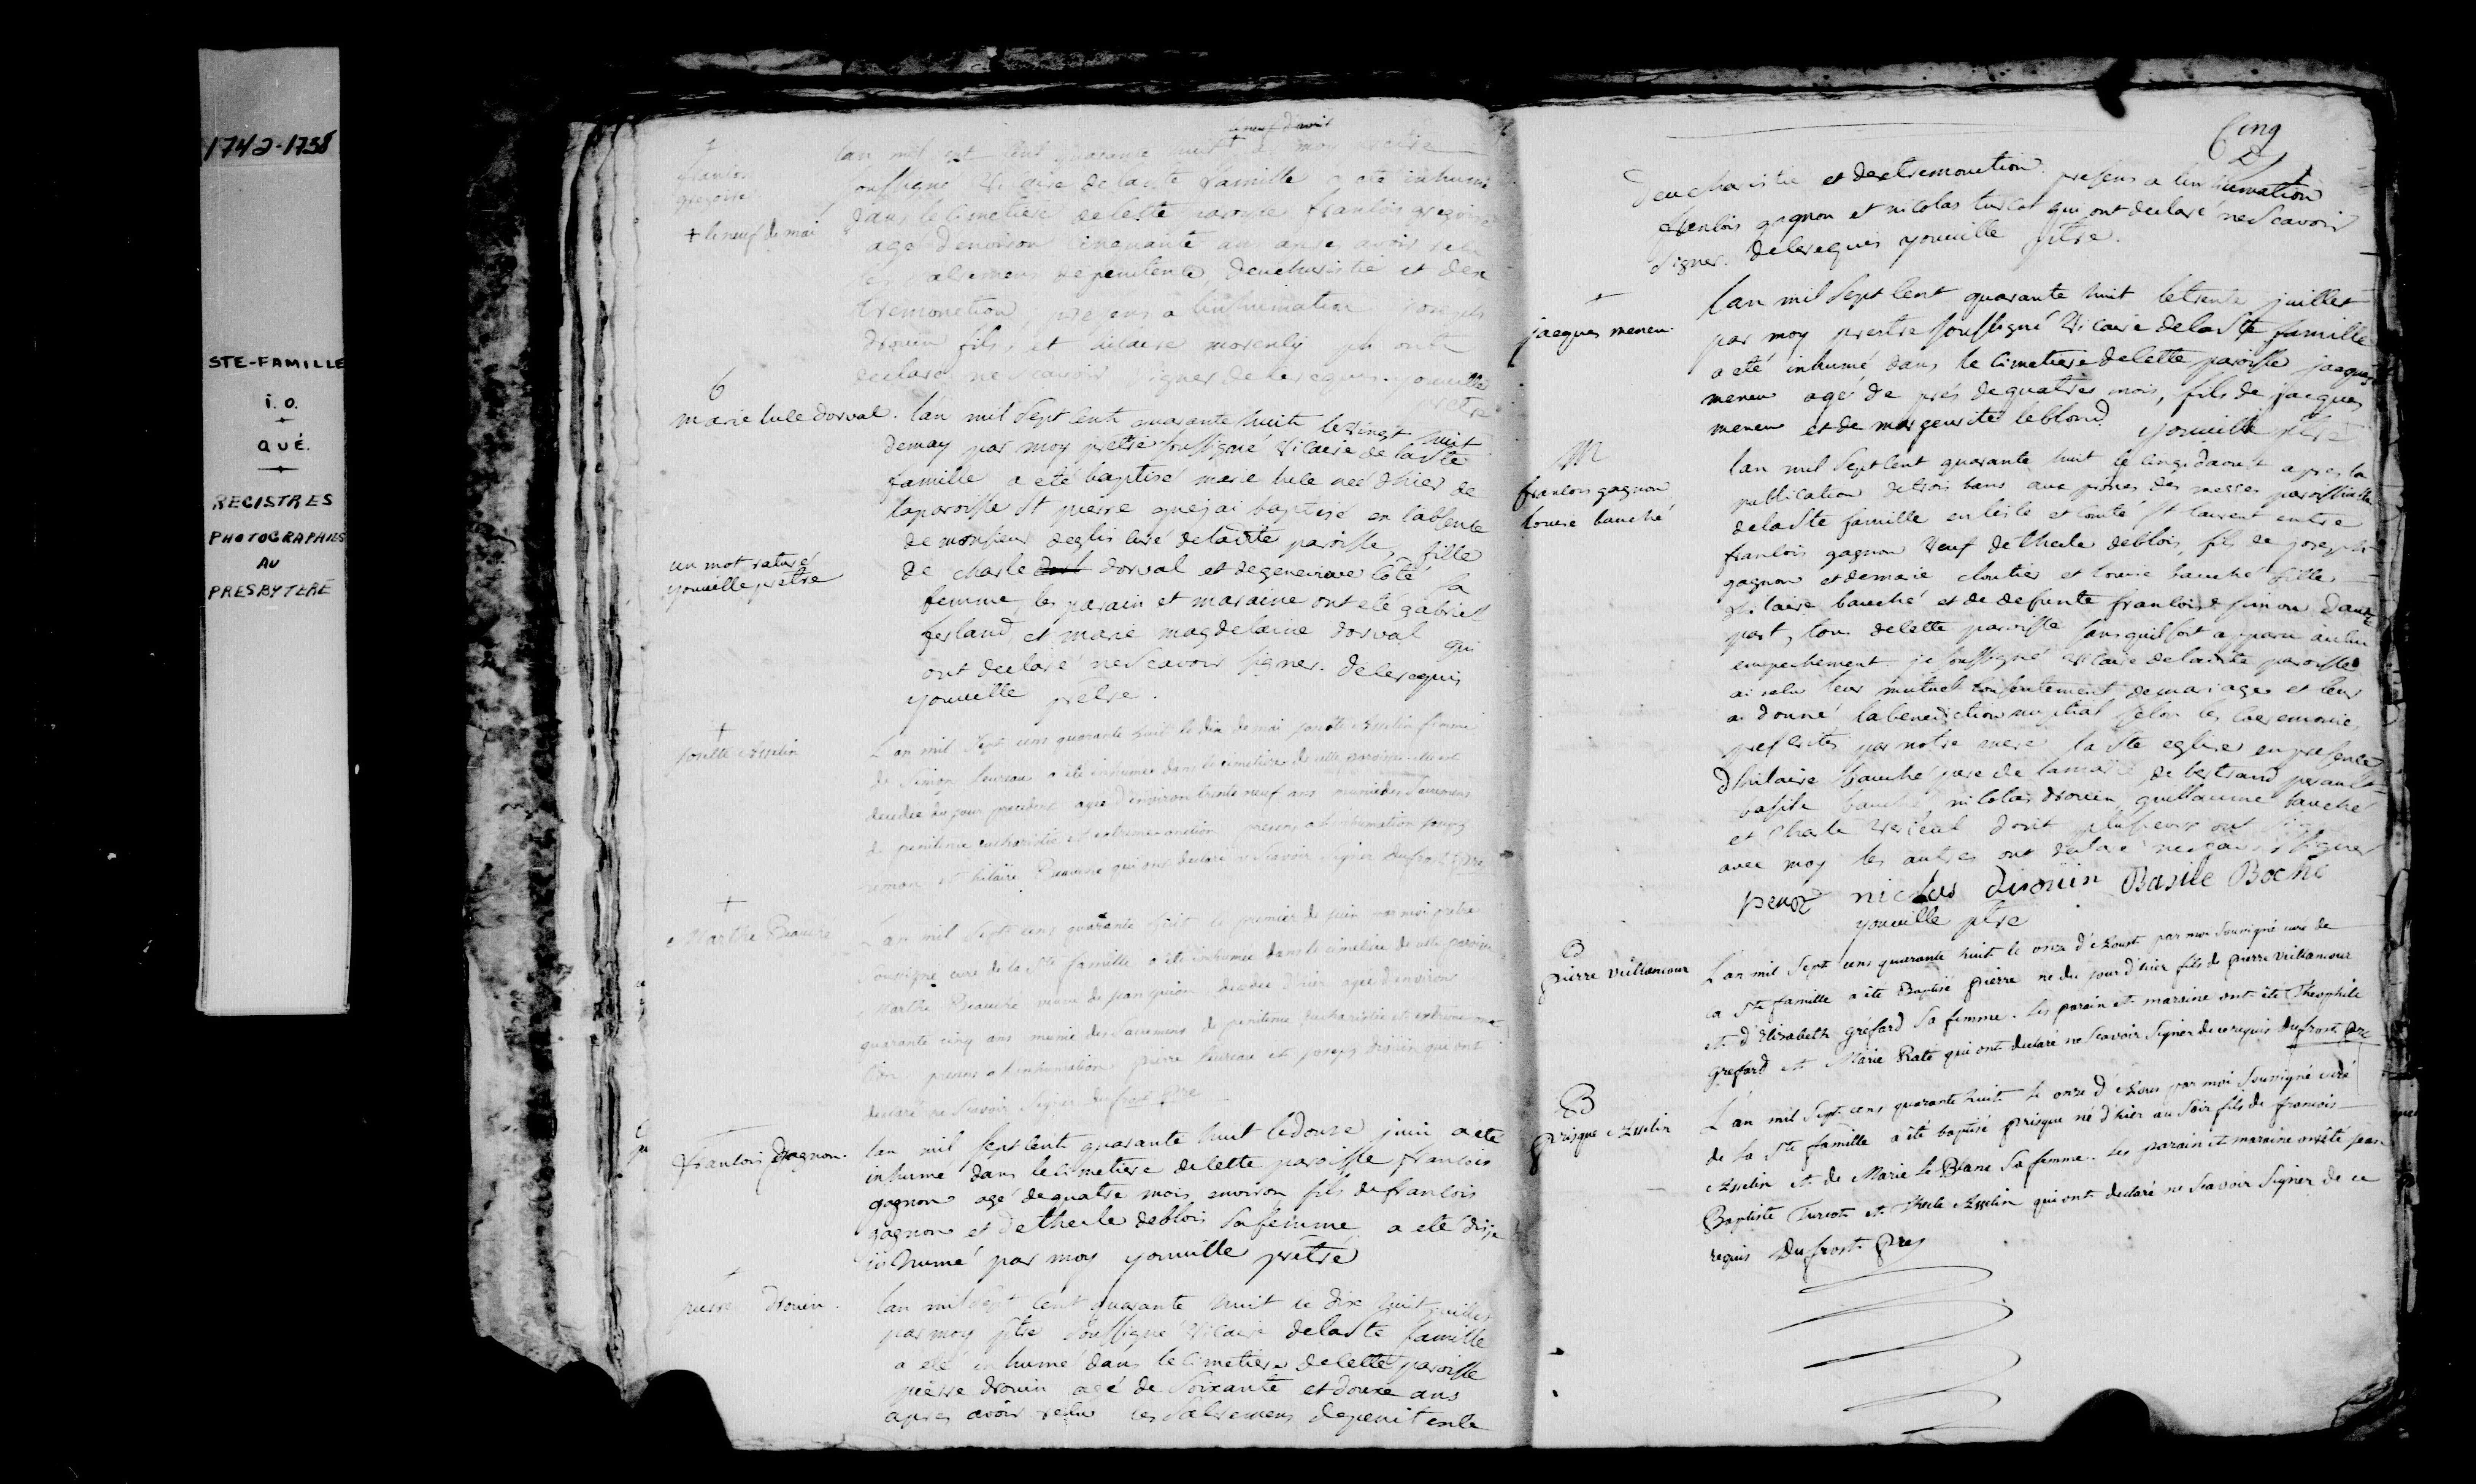 1742-1758
STE-FAMILLE
i.o.
QUÉ.
REGISTRES
PHOTOGRAPHIES
AU
PRESBYTERE
+
francois
gregoire
+ le neuf de mai
lan mil sept cent quarante huit + par moy prêtre
soussigné vicaire de la ste famille a eté inhumé
dans le cimetiere de cette paroisse francois gregoire
agé d'environ cinquante ans apres avoir recu
les sacremens de penitence, deucharistie et dex
tremonction, presens a linhumation joseph
drouin fils, et hilaire qui ont
declaré ne scavoir signer de ce requis. youville
prêtre
B
marie tecle dorval.
lan mil sept cent quarante huit le vingt huit
de may par moy prêtre soussigné vicaire de la ste
famille a eté baptisé marie tecle née d'hier de
la paroisse st pierre que jai baptisé en l'absence
de monsieur deglis curé de ladite paroisse, fille
de charle dorval et de genevieve coté sa
femme, les parain et maraine ont eté gabriel
ferland, et marie magdelaine dorval qui
ont declaré ne scavoir signer. de ce requis
youville prêtre.
un mot raturé
youville prêtre
+
josette Asselin
L'an mil sept cens quarante huit le dix de mai josette Asselin femme
de Simon heureau a été inhumée dans le cimetiere de cette paroisse. elle est
decedée du jour precedent agée d'environ trente neuf ans munie des Sacremens
de penitence eucharistie et extreme-onction presens a l'inhumation joseph
Simon et hilaire Beauché qui ont declaré ne scavoir signer Dufrost pre
+
Marthe Beauché
L'an mil sept cens quarante huit le premier de juin par moi pretre
soussigné curé de la Ste famille a été inhumée dans le cimetiere de cette paroisse
Marthe Beauché veuve de jean guion, decedée d'hier agée d'environ
quarante cinq ans munie des Sacremens de penitence eucharistie et extreme onc
tion. presens a l'inhumation pierre heureau et joseph drouin qui ont
declaré ne scavoir signer Dufrost pre
+
francois gagnon.
lan mil sept cent quarante huit le douze juin a eté
inhumé dans le cimetiere de cette paroisse francois
gagnon agé de quatre mois environ fils de francois
gagnon et de thecle deblois sa femme a eté dis je
inhumé par moy youville prêtre
+
pierre drouin.
lan mil sept cent quarante huit le dix huit juillet
par moy ptre soussigné vicaire de la ste famille
a eté inhumé dans le cimetiere de cette paroisse
pierre drouin agé de soixante et douze ans
apres avoir recu les sacremens de penitence
Cinq
deucharistie et dextremonction presens a linhumation
francois gagnon et nicolas turcot qui ont declaré ne scavoir
signer. de ce requis youville ptre.
+
jacques meneu.
lan mil sept cent quarante huit le trente juillet
par moy prestre soussigné vicaire de la ste famille
a eté inhumé dans le cimetiere de cette paroisse jacques
meneu agé de près de quatres mois, fils de jacques
meneu et de margeurite leblond youville ptre
M
francois gagnon
louise bauché
lan mil sept cent quarante huit le cinq daoust apres la
publication de trois bans aux prones des messes paroissialle
de la ste famille en lisle et comté st laurent entre
francois gagnon veuf de thecle deblois, fils de joseph
gagnon et de marie cloutier et louise bauché fille
d'hilaire bauché et de defunte francoise simon dautre
part, tous de cette paroisse sans quil soit apparu aucun
empechement je soussigné vicaire de ladite paroisse
ai recu leur mutuel consentement de mariage et leur
ai donné la benediction nuptial selon les ceremonies
prescrites par notre mere la ste eglise en presence
dhilaire bauché pere de la mariée, de bertrand perault
basile bauché nicolas drouin guillaume bauché
et charle verieul dont plusieurs ont signé
avec moy les autres ont declaré ne scavoir signer
perot nicolas drouin Basile Boché
youville ptre
B
pierre vuillancour
L'an mil sept cens quarante huit le onze d'Aoust par moi soussigné curé de
la Ste famille a été Baptisé pierre né du jour d'hier fils de pierre vuillancour
et d'Elisabeth gréfard sa femme. les parain et maraine ont été Theophile
grefard et Marie Raté qui ont declaré ne scavoir signer de ce requis Dufrost pre
B
prisque Asselin
L'an mil sept cens quarante huit le onze d'Aous par moi soussigné curé
de la Ste famille a été baptisé prisque né d'hier au soir fils de francois
Asselin et de Marie Le Blanc sa femme. les parain et maraine ont été jean
Baptiste Turcot et Thecle Asselin qui ont declaré ne scavoir signer de ce
requis Dufrost pre